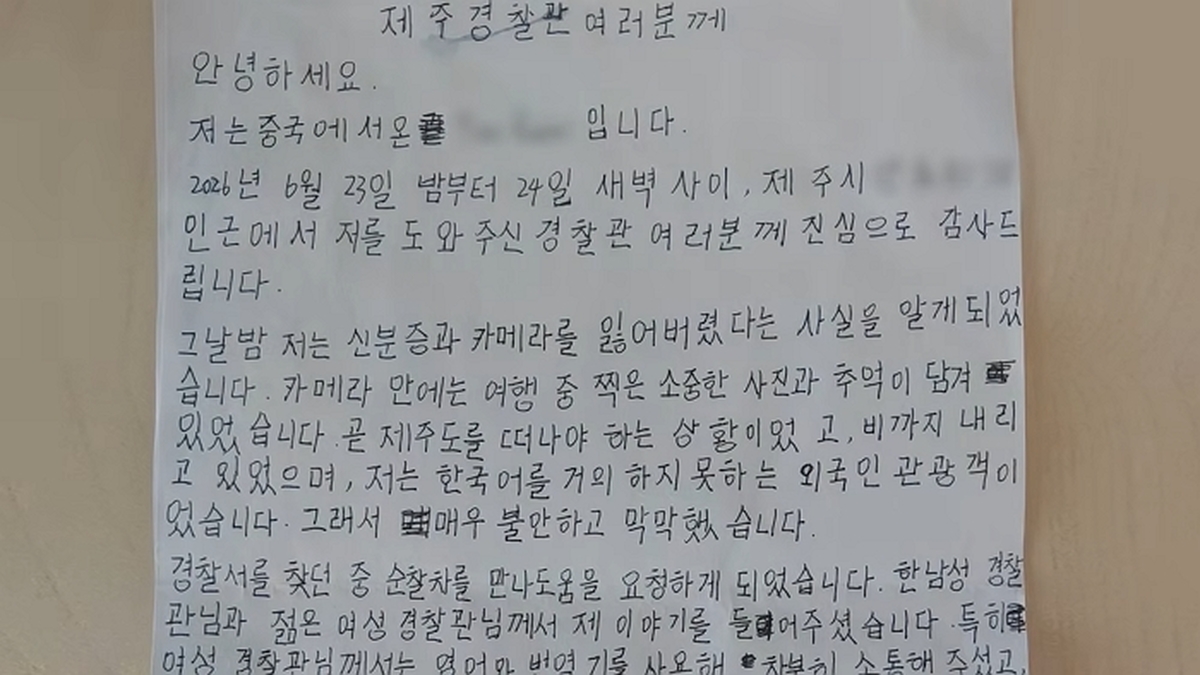 제주경찰관 여러분께
안녕하세요.
저는 중국에서 온 입니다.
2026년 6월 23일 밤부터 24일 새벽 사이, 제주시
인근에서 저를 도와주신 경찰관 여러분께 진심으로 감사드
립니다.
그날 밤 저는 신분증과 카메라를 잃어버렸다는 사실을 알게되었
습니다. 카메라 안에는 여행 중 찍은 소중한 사진과 추억이 담겨
있었습니다. 곧 제주도를 떠나야 하는 상황이었고, 비까지 내리
고 있었으며, 저는 한국어를 거의 하지 못하는 외국인 관광객이
었습니다. 그래서 매우 불안하고 막막했습니다.
경찰서를 찾던 중 순찰차를 만나도움을 요청하게 되었습니다. 한남성 경찰
관님과 젊은 여성 경찰관님께서 제 이야기를 들어주셨습니다. 특히
여성 경찰관님께서는 영어와 번역기를 사용해 차분히 소통해 주셨고,